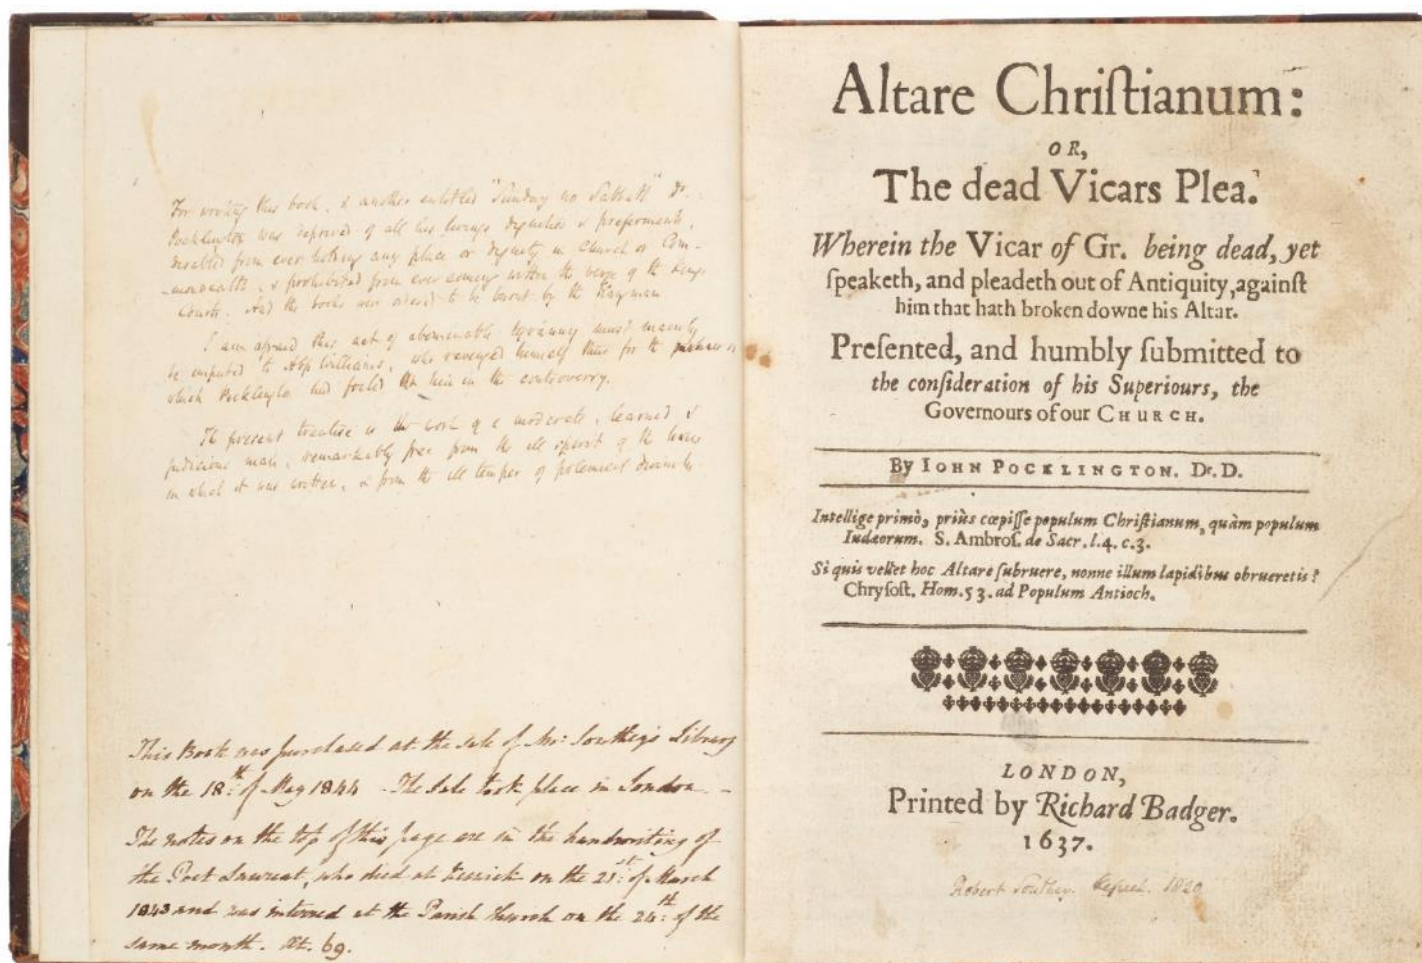 For writing this book, & another entitled "Sunday no Sabbath" Dr.
Pocklington was deprived of all his livings dignities & preferments,
disabled from ever holding any place or dignity in Church or Com-
-monwealth, & prohibited from ever coming within the verge of the Kings
Courts. And the books were ordered to be burnt by the Hangman
I am afraid this act of abominable tyranny must mainly
be imputed to Abp Williams, who revenged himself thus for the manner in
which Pocklington had foiled him in the controversy.
The present treatise is the work of a moderate, learned &
judicious man, remarkably free from the ill spirit of the times
in which it was written, & from the ill temper of polemical divines
This Book was purchased at the sale of Mr: Southey's Library
on the 18th: of May 1844 - The Sale took place in London -
The notes on the top of this page are in the handwriting of
the Poet Laureat, who died at Keswick on the 21st: of March
1843 and was interred at the Parish Church on the 24th: of the
same month. Æt. 69.
Altare Chriſtianum:
OR,
The dead Vicars Plea.
Wherein the Vicar of Gr. being dead, yet
ſpeaketh, and pleadeth out of Antiquity, againſt
him that hath broken downe his Altar.
Preſented, and humbly ſubmitted to
the conſideration of his Superiours, the
Governours of our CHURCH.
By IOHN POCKLINGTON. Dr. D.
Intellige primò, priùs cœpiſſe populum Chriſtianum, quàm populum
Iudæorum. S. Ambroſ. de Sacr. l.4. c.3.
Si quis vellet hoc Altare ſubruere, nonne illum lapidibus obrueretis?
Chryſoſt. Hom. 53. ad Populum Antioch.
LONDON,
Printed by Richard Badger.
1637.
Robert Southey. Keswick. 1820